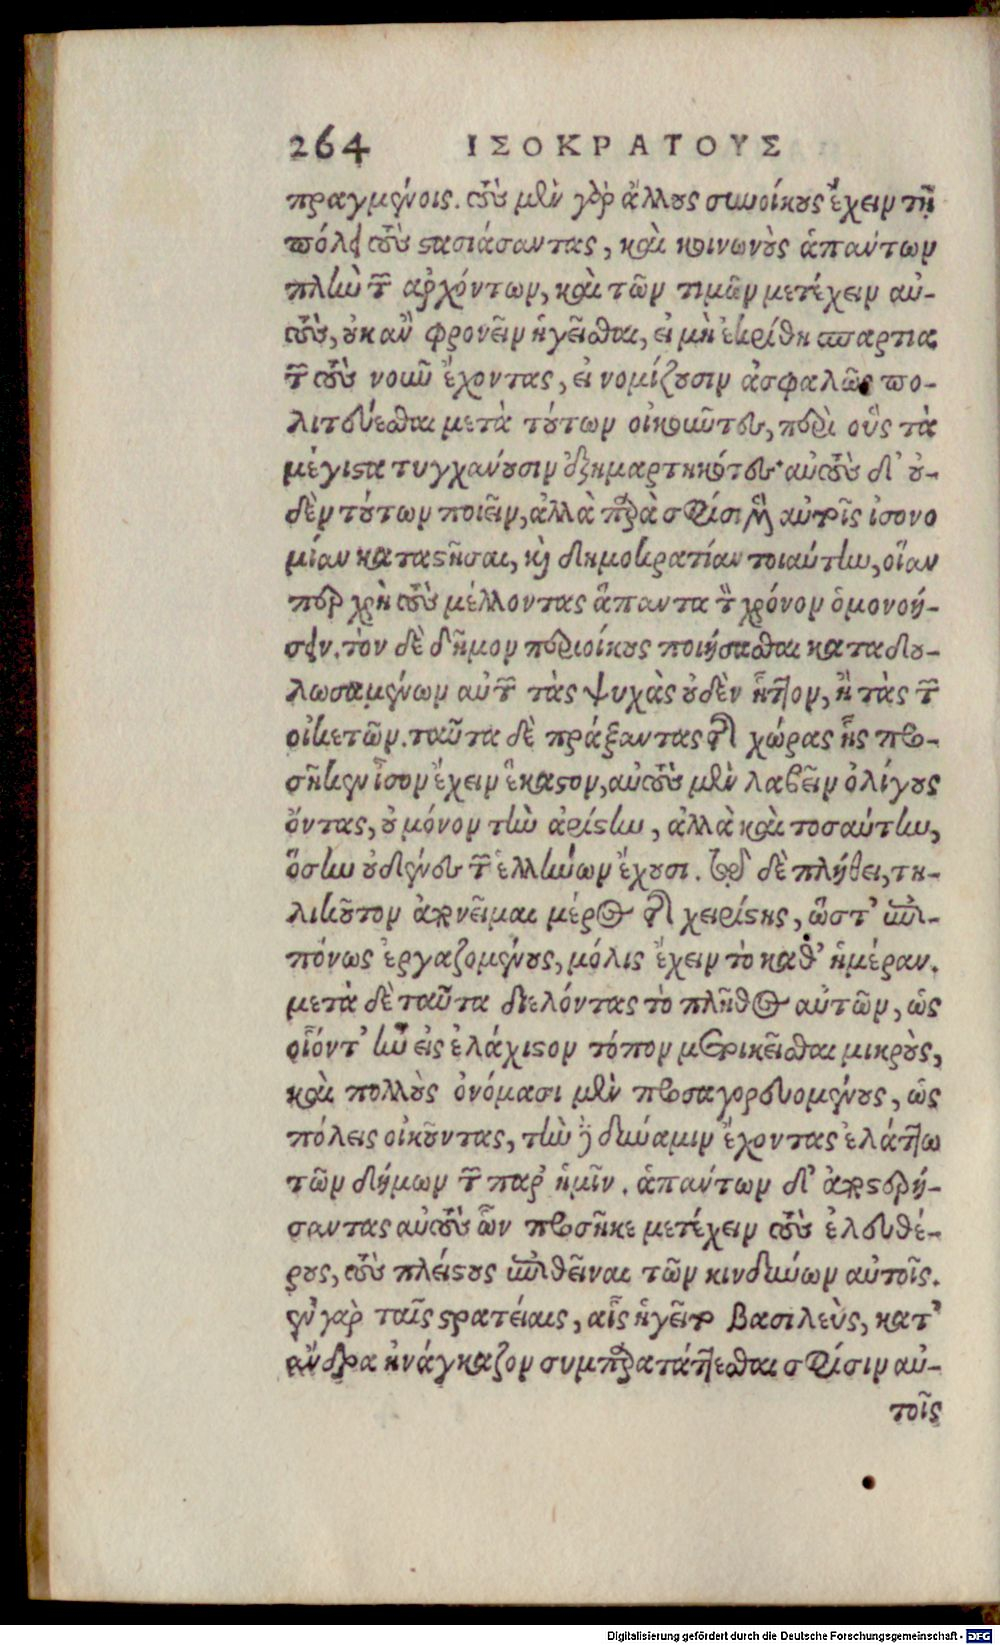 264 ΙΣΟΚΡΑΤΟΥΣ
πραγμένοις. τοὺς μὲν γὰρ ἄλλους συνοίκους ἔχειν τῇ
πόλει τοὺς στασιάσαντας, καὶ κοινωνοὺς ἁπάντων
πλὴν τῶν ἀρχόντων, καὶ τῶν τιμῶν μετέχειν αὐ-
τοὺς, οὐκ ἂν φρονεῖν ἡγεῖσθαι, εἰ μὴ ἐκρίθη σπαρτια
τῶν τοὺς νοῦν ἔχοντας, εἰ νομίζουσιν ἀσφαλῶς πο-
λιτεύεσθαι μετὰ τούτων οἰκοῦντες, περὶ οὓς τὰ
μέγιστα τυγχάνουσιν ἐξημαρτηκότες· αὐτοὺς δ' οὐ-
δὲν τούτων ποιεῖν, ἀλλὰ παρὰ σφίσι μὲν αὐτοῖς ἰσονο
μίαν καταστῆσαι, καὶ δημοκρατίαν τοιαύτην, οἵαν
περ χρὴ τοὺς μέλλοντας ἅπαντα τὸν χρόνον ὁμονοή-
σειν. τὸν δὲ δῆμον περιοίκους ποιήσασθαι καταδου-
λωσαμένων αὐτῶν τὰς ψυχὰς οὐδὲν ἧττον, ἢ τὰς τῶν
οἰκετῶν. ταῦτα δὲ πράξαντας τῆς χώρας ἧς προ-
σῆκεν ἴσον ἔχειν ἕκαστον, αὐτοὺς μὲν λαβεῖν ὀλίγους
ὄντας, οὐ μόνον τὴν ἀρίστην, ἀλλὰ καὶ τοσαύτην,
ὅσην οὐδένες τῶν ἑλλήνων ἔχουσι. τῷ δὲ πλήθει, τη-
λικοῦτον ἀπονεῖμαι μέρος τῆς χειρίστης, ὥστ' ἐπι-
πόνως ἐργαζομένους, μόλις ἔχειν τὸ καθ' ἡμέραν.
μετὰ δὲ ταῦτα διελόντας τὸ πλῆθος αὐτῶν, ὡς
οἷόντ' ἦν εἰς ἐλάχιστον τόπον κατοικεῖσθαι μικροὺς,
καὶ πολλοὺς ὀνόμασι μὲν προσαγορευομένους, ὡς
πόλεις οἰκοῦντας, τὴν δὲ δύναμιν ἔχοντας ἐλάττω
τῶν δήμων τῶν παρ' ἡμῖν. ἁπάντων δ' ἀποστερή-
σαντας αὐτοὺς ὧν προσῆκε μετέχειν τοὺς ἐλευθέ-
ρους, τοὺς πλείστους ἐπιθεῖναι τῶν κινδύνων αὐτοῖς.
ἐν γὰρ ταῖς στρατείαις, αἷς ἡγεῖτο βασιλεὺς, κατ'
ἄνδρα ἠνάγκαζον συμπαρατάττεσθαι σφίσιν αὐ-
τοῖς
Digitalisierung gefördert durch die Deutsche Forschungsgemeinschaft - DFG